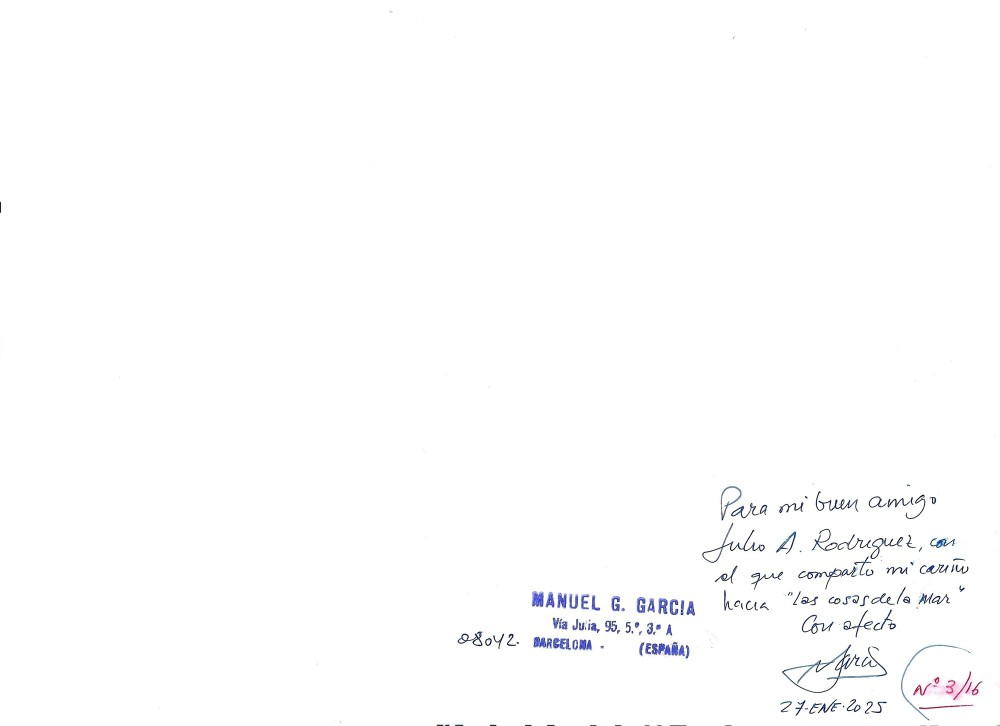 Para mi buen amigo
Julio A. Rodriguez, con
el que comparto mi cariño
hacia "las cosas de la mar"
Con afecto
MANUEL G. GARCIA
Vía Julia, 95, 5.º, 3.ª A
08042. BARCELONA - (ESPAÑA)
27-ENE-2025
Nº 3/16